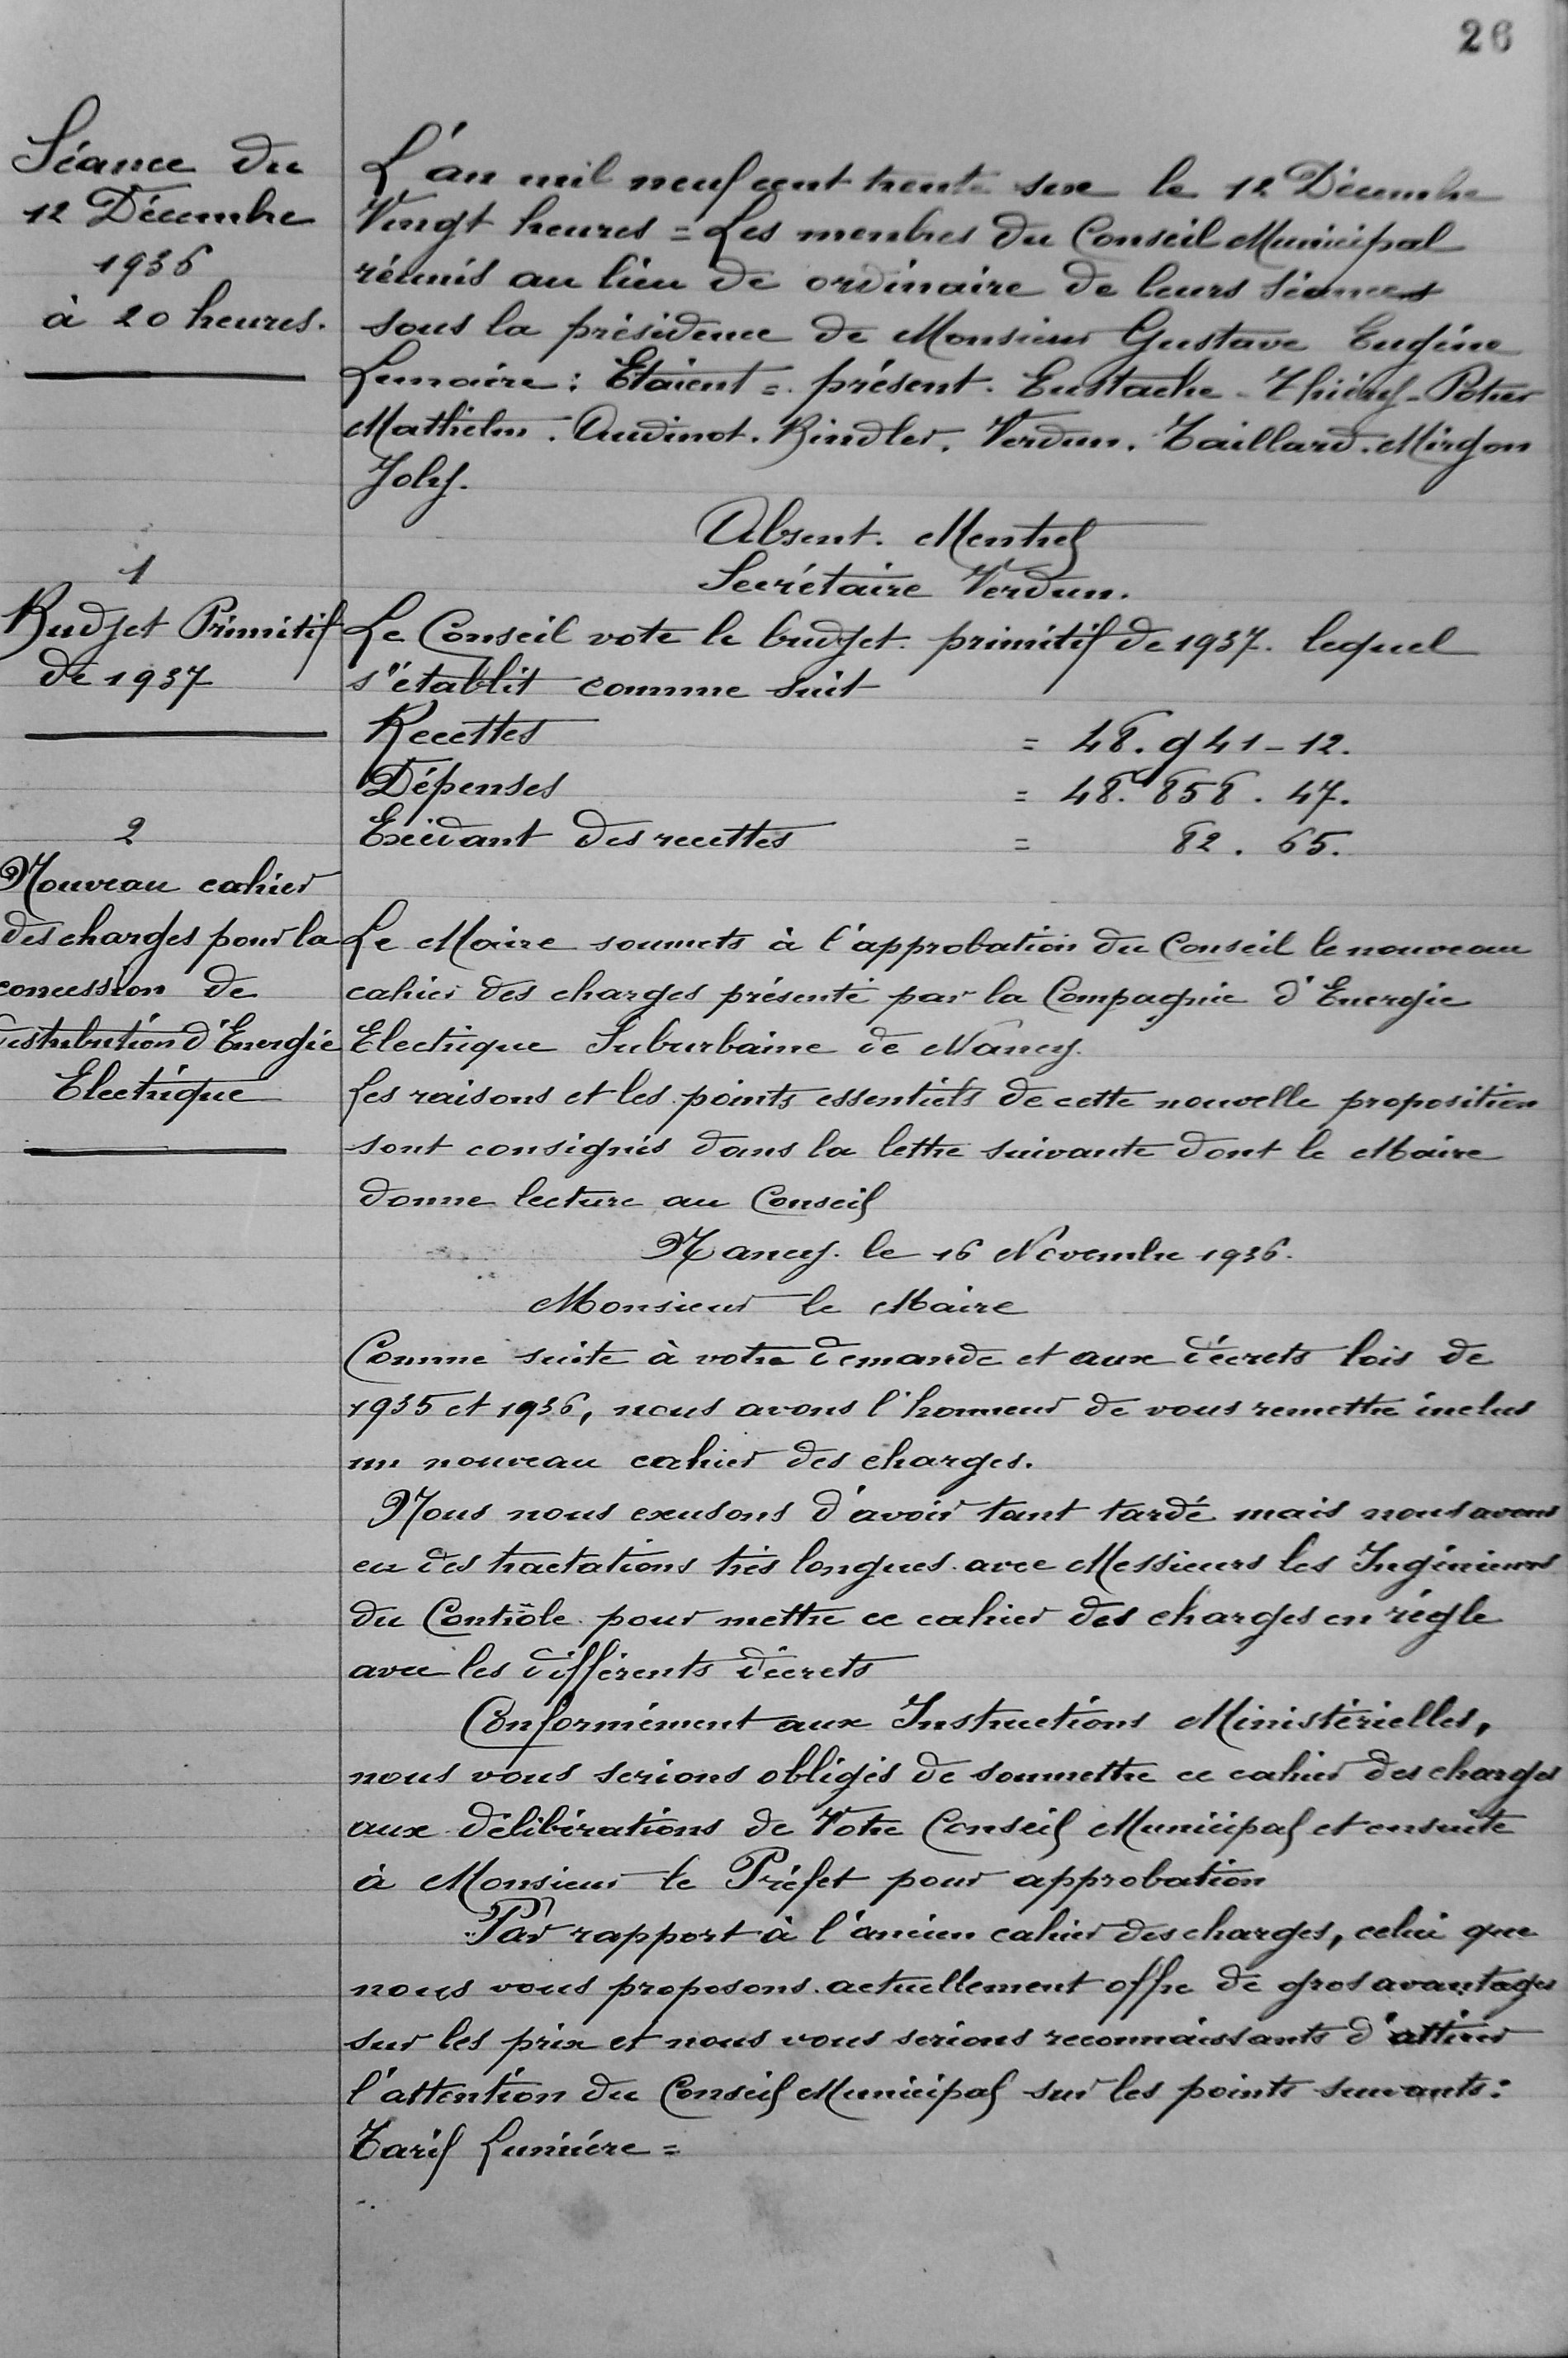 26
Séance du
12 Décembre
1936
à 20 heures.
L'an mil neuf cent trente six le 12 Décembre
Vingt heures = Les membres du Conseil Municipal
réunis au lieu de ordinaire de leurs séances
sous la présidence de Monsieur Gustave Eugéne
Lemaire : Etaient = présent. Eustache - Thiéry - Potier
Mathieu. Audinot. Rindler. Verdun. Taillard. Mirgon
Joly.
Absent. Mentrel
Secrétaire Verdun.
1
Budget Primitif
de 1937
Le Conseil vote le budget primitif de 1937. lequel
s'établit comme suit
Recettes = 48.941-12.
Dépenses = 48.858.47.
Exédant des recettes = 82.65.
2
Nouveau cahier
des charges pour la
concession de
distribution d'Énergie
Electrique
Le Maire soumets à l'approbation du Conseil le nouveau
cahier des charges présenté par la Compagnie d'Energie
Electrique Suburbaine de Nancy.
Les raisons et les points essentiels de cette nouvelle proposition
sont consignés dans la lettre suivante dont le Maire
donne lecture au Conseil
Nancy. le 16 Novembre 1936.
Monsieur le Maire
Comme suite à votre demande et aux décrets lois de
1935 et 1936, nous avons l'honneur de vous remettre inclus
un nouveau cahier des charges.
Nous nous excusons d'avoir tant tardé mais nous avons
eu des tractations très longues avec Messieurs les Ingénieurs
du Contrôle pour mettre ce cahier des charges en régle
avec les différents décrets
Conformément aux Instructions Ministérielles,
nous vous serions obligés de soumettre ce cahier des charges
aux délibérations de Votre Conseil Municipal et ensuite
à Monsieur le Préfet pour approbation
Par rapport à l'ancien cahier des charges, celui que
nous vous proposons actuellement offre de gros avantages
sur les prix et nous vous serions reconnaissants d'attirer
l'attention du Conseil Municipal sur les points suivants :
Tarif Lumière =